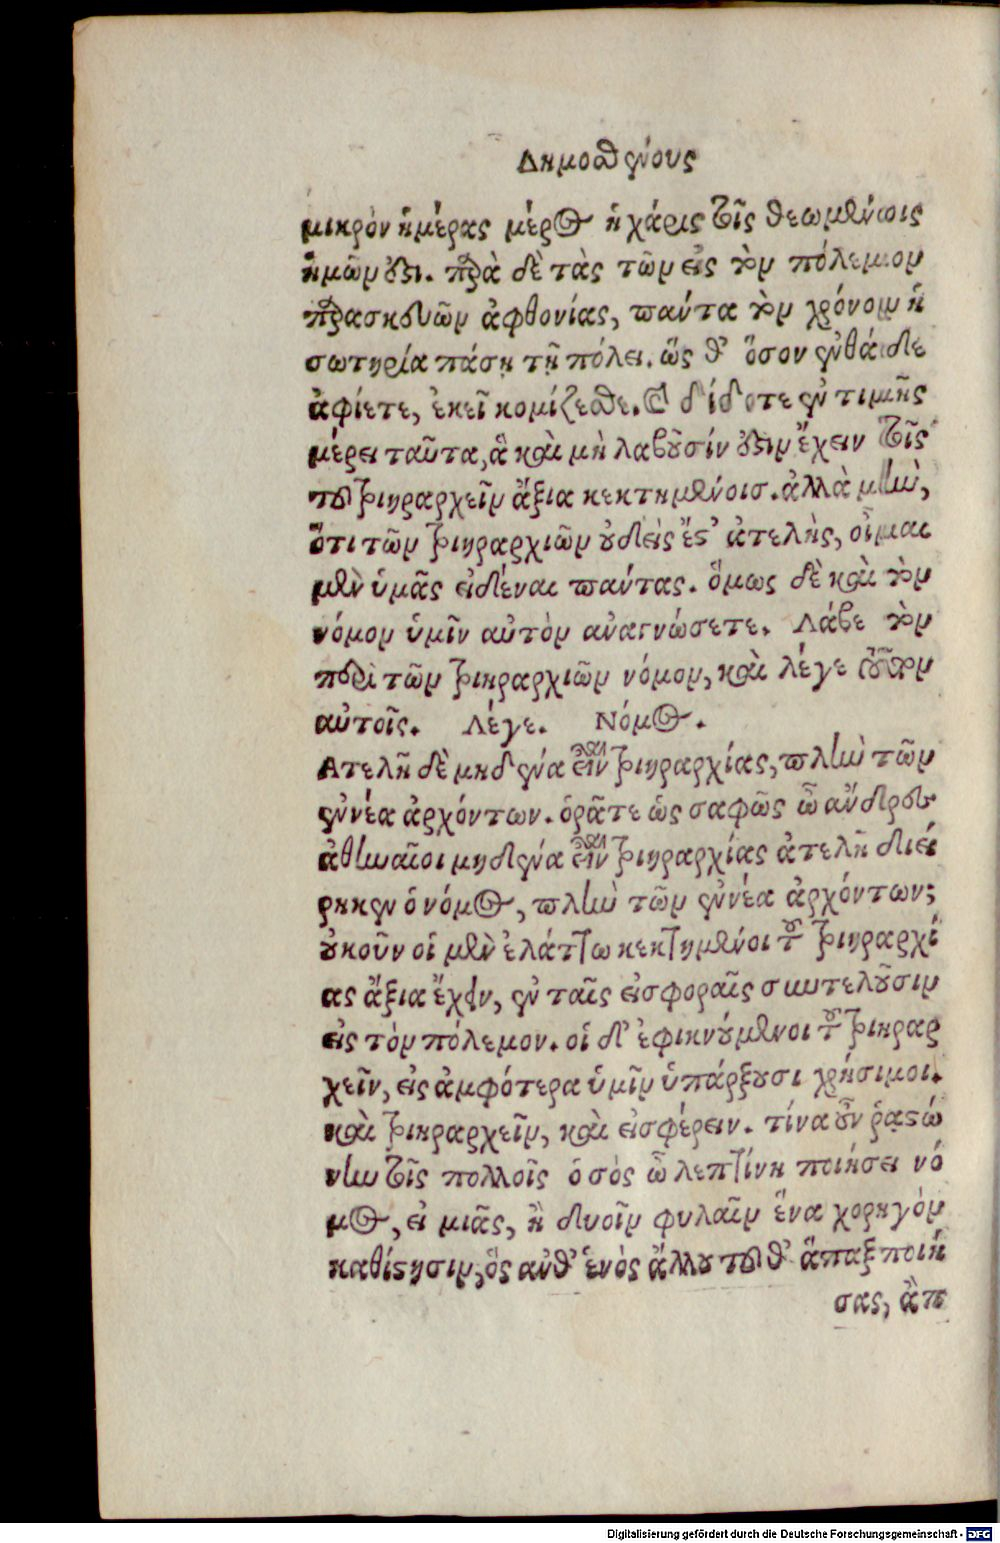 Δημοσθένους
μικρὸν ἡμέρας μέρος ἡ χάρις τοῖς θεωμένοις
ἡμῶν ἐστι. παρὰ δὲ τὰς τῶν εἰς τὸν πόλεμον
παρασκευῶν ἀφθονίας, πάντα τὸν χρόνον ἡ
σωτηρία πάσῃ τῇ πόλει. ὥς θ' ὅσον ἐνθάδε
ἀφίετε, ἐκεῖ κομίζεσθε. καὶ δίδοτε ἐν τιμῆς
μέρει ταῦτα, ἃ καὶ μὴ λαβοῦσίν ἐστιν ἔχειν τοῖς
τοῦ τριηραρχεῖν ἄξια κεκτημένοισ. ἀλλὰ μὴν,
ὅτι τῶν τριηραρχιῶν οὐδείς ἔστ' ἀτελὴς, οἶμαι
μὲν ὑμᾶς εἰδέναι πάντας. ὅμως δὲ καὶ τὸν
νόμον ὑμῖν αὐτὸν ἀναγνώσετε. Λάβε τὸν
περὶ τῶν τριηραρχιῶν νόμον, καὶ λέγε τοῦτον
αὐτοῖς. Λέγε. Νόμος.
Ατελῆ δὲ μηδένα εἶναι τριηραρχίας, πλὴν τῶν
ἐννέα ἀρχόντων. ὁρᾶτε ὡς σαφῶς ὦ ἄνδρες
ἀθηναῖοι μηδένα εἶναι τριηραρχίας ἀτελῆ διεί
ρηκεν ὁ νόμος, πλὴν τῶν ἐννέα ἀρχόντων;
οὐκοῦν οἱ μὲν ἐλάττω κεκτημένοι τοῦ τριηραρχί
ας ἄξια ἔχειν, ἐν ταῖς εἰσφοραῖς συντελοῦσιν
εἰς τὸν πόλεμον. οἱ δ' ἐφικνούμενοι τοῦ τριηραρ
χεῖν, εἰς ἀμφότερα ὑμῖν ὑπάρξουσι χρήσιμοι.
καὶ τριηραρχεῖν, καὶ εἰσφέρειν. τίνα οὖν ῥᾳστώ
νην τοῖς πολλοῖς ὁ σὸς ὦ λεπτίνη ποιήσει νό
μος, εἰ μιᾶς, ἢ δυοῖν φυλαῖν ἕνα χορηγὸν
καθίστησιν, ὃς ἀνθ' ἑνὸς ἄλλου τοῦθ' ἅπαξ ποιή
σας, ἀπ
Digitalisierung gefördert durch die Deutsche Forschungsgemeinschaft - DFG